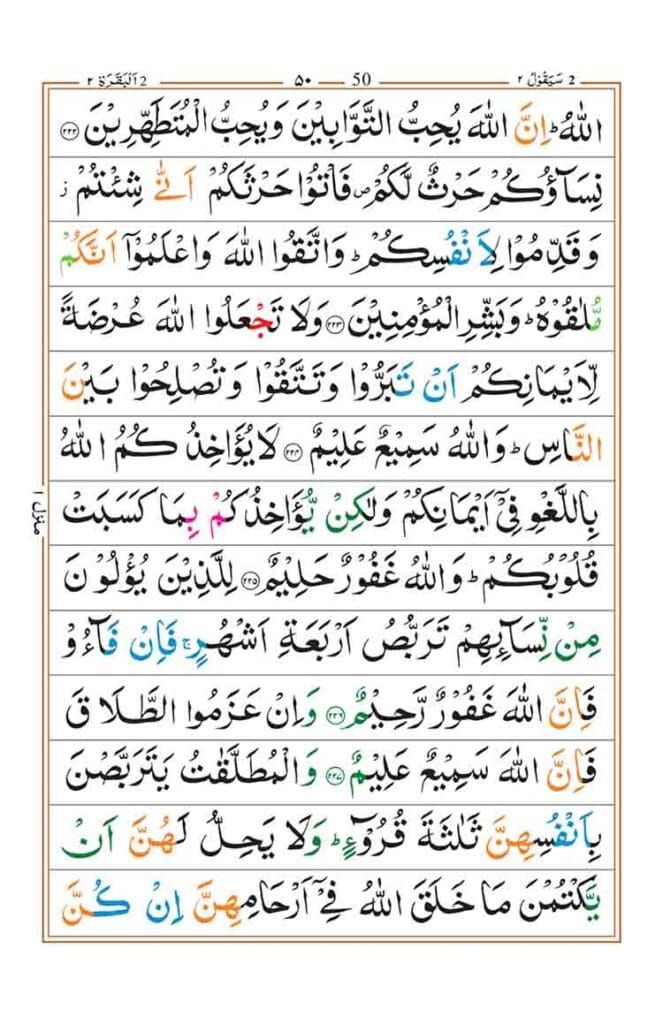 2 سَيَقُوْلُ ٢ 50 ٥٠ 2 اَلْبَقَرَة ٢
اللّٰهُ ؕ اِنَّ اللّٰهَ يُحِبُّ التَّوَّابِيْنَ وَيُحِبُّ الْمُتَطَهِّرِيْنَ ﴿۲۲۲﴾
نِسَآؤُكُمْ حَرْثٌ لَّكُمْ ۪ فَاْتُوْا حَرْثَكُمْ اَنّٰى شِئْتُمْ ؗ
وَقَدِّمُوْا لِاَنْفُسِكُمْ ؕ وَاتَّقُوا اللّٰهَ وَاعْلَمُوْۤا اَنَّكُمْ
مُّلٰقُوْهُ ؕ وَبَشِّرِ الْمُؤْمِنِيْنَ ﴿۲۲۳﴾ وَلَا تَجْعَلُوا اللّٰهَ عُرْضَةً
لِّاَيْمَانِكُمْ اَنْ تَبَرُّوْا وَتَتَّقُوْا وَتُصْلِحُوْا بَيْنَ
النَّاسِ ؕ وَاللّٰهُ سَمِيْعٌ عَلِيْمٌ ﴿۲۲۴﴾ لَا يُؤَاخِذُكُمُ اللّٰهُ
بِاللَّغْوِ فِىْۤ اَيْمَانِكُمْ وَلٰكِنْ يُّؤَاخِذُكُمْ بِمَا كَسَبَتْ
قُلُوْبُكُمْ ؕ وَاللّٰهُ غَفُوْرٌ حَلِيْمٌ ﴿۲۲۵﴾ لِلَّذِيْنَ يُؤْلُوْنَ
مِنْ نِّسَآئِهِمْ تَرَبُّصُ اَرْبَعَةِ اَشْهُرٍ ۚ فَاِنْ فَآءُوْ
فَاِنَّ اللّٰهَ غَفُوْرٌ رَّحِيْمٌ ﴿۲۲۶﴾ وَاِنْ عَزَمُوا الطَّلَاقَ
فَاِنَّ اللّٰهَ سَمِيْعٌ عَلِيْمٌ ﴿۲۲۷﴾ وَالْمُطَلَّقٰتُ يَتَرَبَّصْنَ
بِاَنْفُسِهِنَّ ثَلٰثَةَ قُرُوْٓءٍ ؕ وَلَا يَحِلُّ لَهُنَّ اَنْ
يَّكْتُمْنَ مَا خَلَقَ اللّٰهُ فِىْۤ اَرْحَامِهِنَّ اِنْ كُنَّ
منزل ١